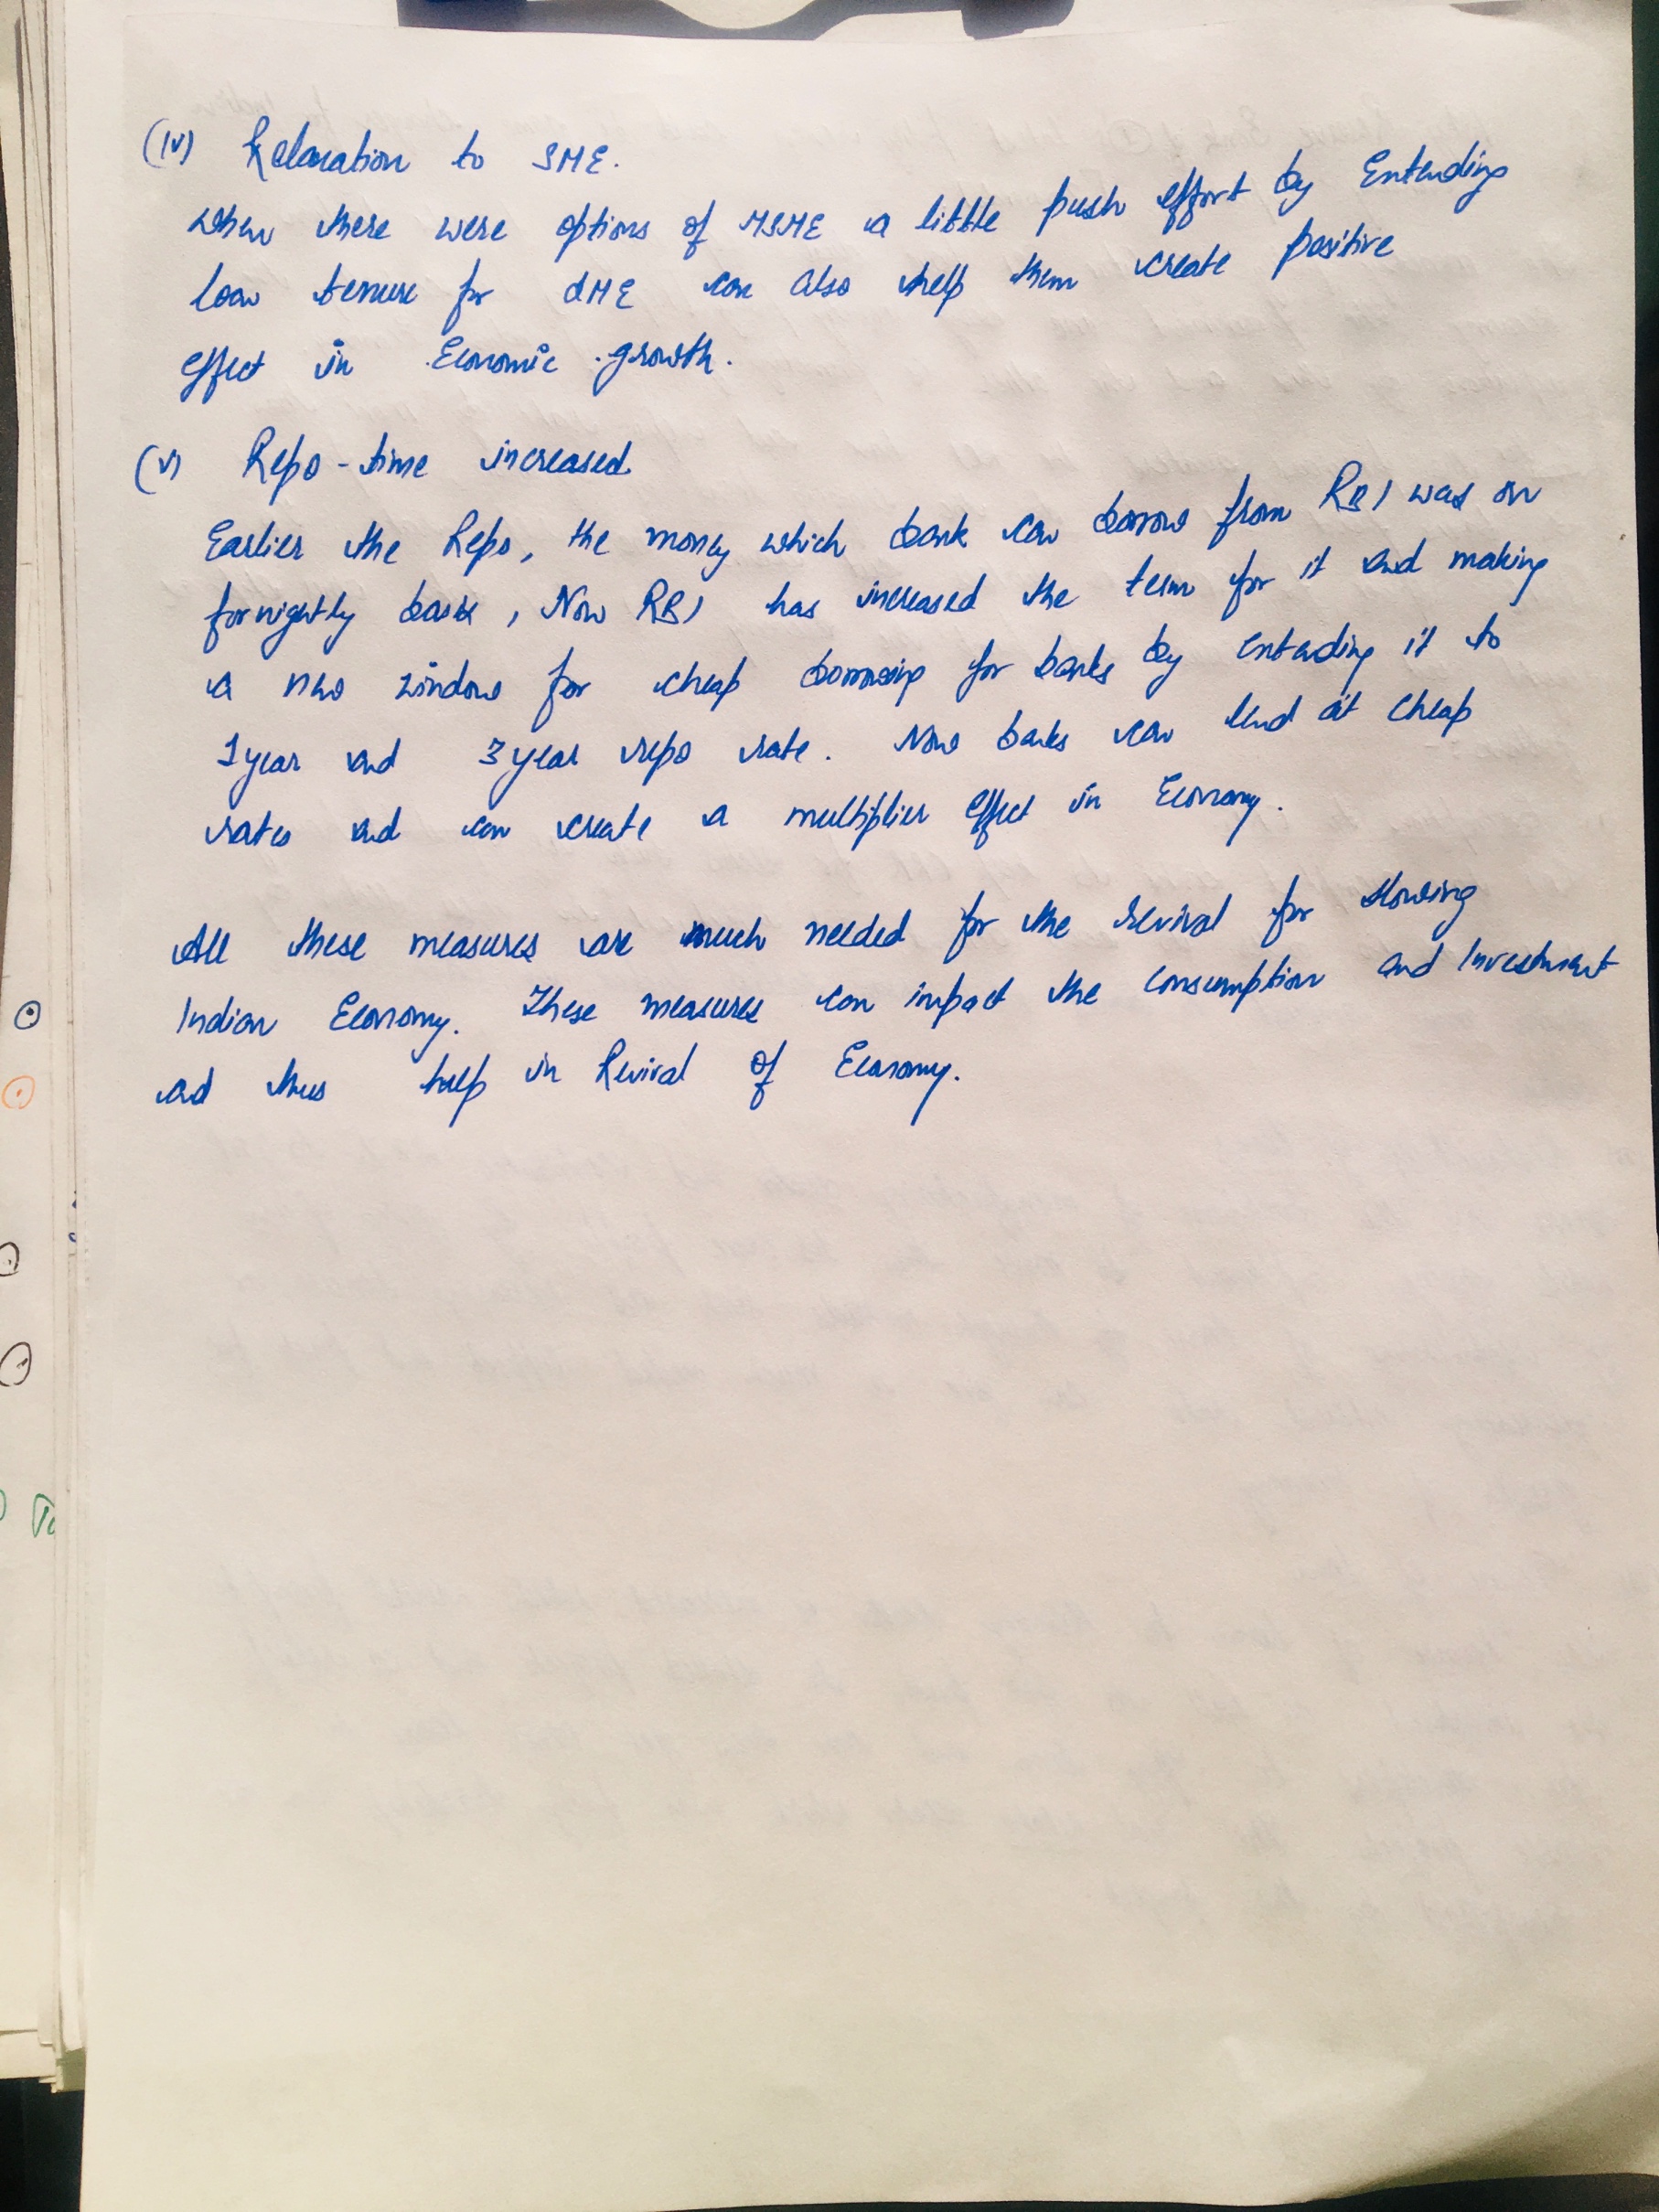 (iv) Relaxation to SME.
When there were options of MSME a little push effort by Extending
loan tenure for SME can also help them create positive
effect in Economic growth.
(v) Repo-time increased
Earlier the Repo, the money which bank can borrow from RBI was on
fornightly basis, Now RBI has increased the term for it and making
a new window for cheap borrowing for banks by extending it to
1 year and 3 year repo rate. Now banks can lend at cheap
rates and can create a multiplier effect in Economy.
All these measures are much needed for the revival for slowing
Indian Economy. These measures can impact the consumption and Investment
and thus help in Revival of Economy.